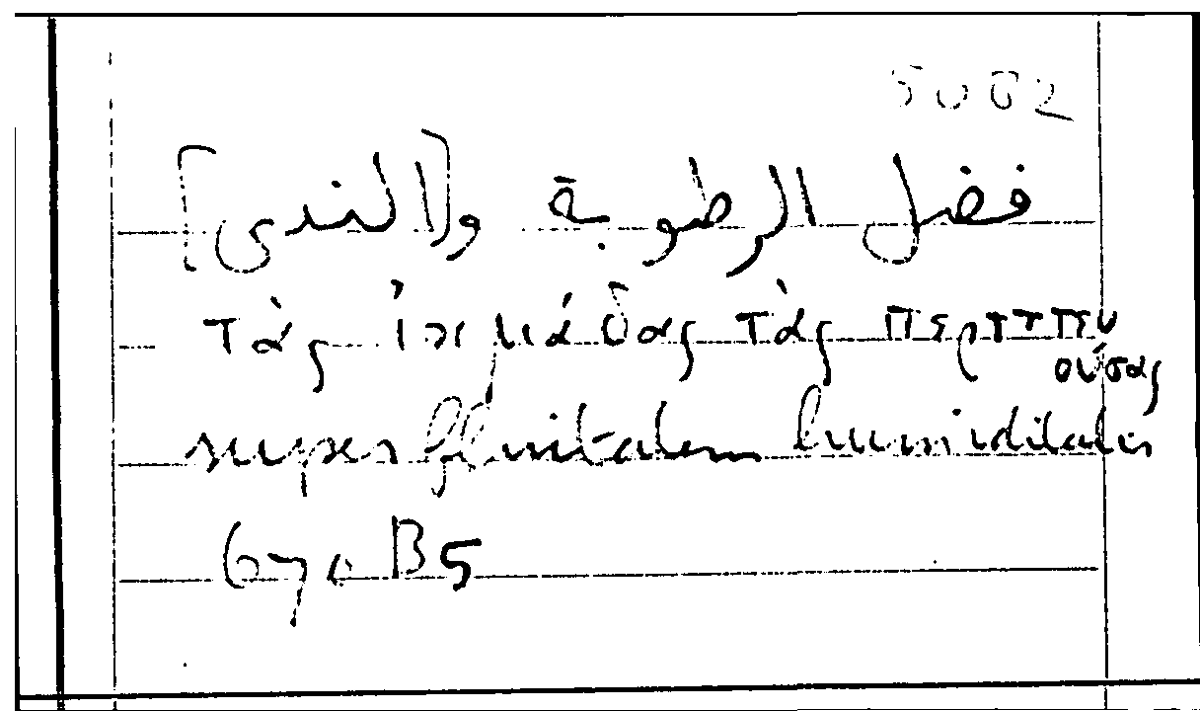 فضل الرطوبة و[الندى]
τὰς ἰκμάδας τὰς περιττευ
ούσας
superfluitatem humiditatis
670 B5